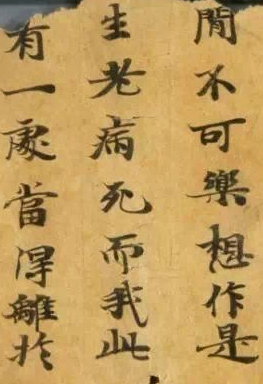 閒不可樂想作是
生老病死而我此
有一處當得離於